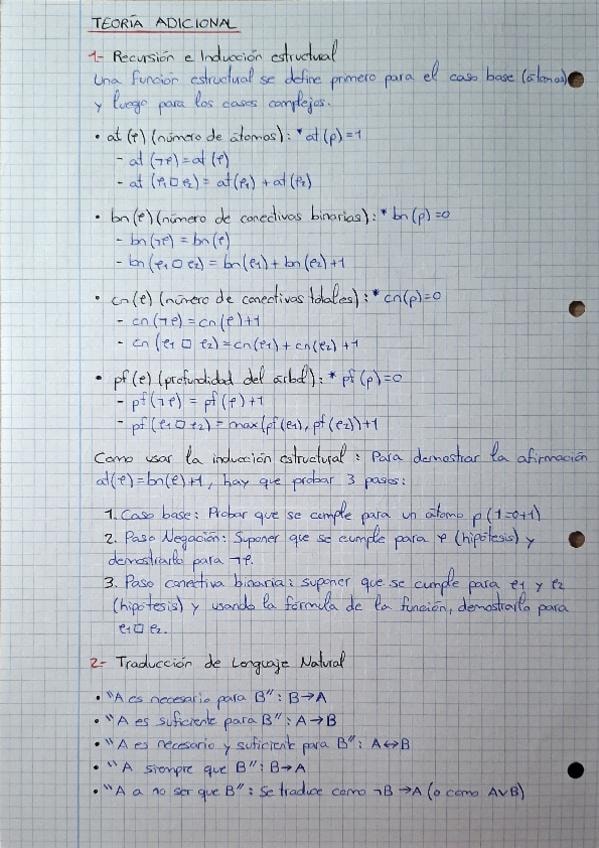 TEORÍA ADICIONAL
1- Recursión e Inducción estructural
Una función estructural se define primero para el caso base (átomos)
y luego para los casos complejos.
• at(φ) (número de átomos): * at(p)=1
- at(¬φ)=at(φ)
- at(φ1□φ2)= at(φ1)+at(φ2)
• bn(φ) (número de conectivas binarias): * bn(p)=0
- bn(¬φ)=bn(φ)
- bn(φ1□φ2)=bn(φ1)+bn(φ2)+1
• cn(φ) (número de conectivas totales): * cn(p)=0
- cn(¬φ)=cn(φ)+1
- cn(φ1□φ2)=cn(φ1)+cn(φ2)+1
• pf(φ) (profundidad del árbol): * pf(p)=0
- pf(¬φ)=pf(φ)+1
- pf(φ1□φ2)=max(pf(φ1),pf(φ2))+1
Como usar la inducción estructural: Para demostrar la afirmación
at(φ)=bn(φ)+1, hay que probar 3 pasos:
1. Caso base: Probar que se cumple para un átomo p (1=0+1)
2. Paso Negación: Suponer que se cumple para φ (hipótesis) y
demostrarlo para ¬φ.
3. Paso conectiva binaria: suponer que se cumple para φ1 y φ2
(hipótesis) y usando la fórmula de la función, demostrarlo para
φ1□φ2.
2- Traducción de Lenguaje Natural
• "A es necesario para B": B→A
• "A es suficiente para B": A→B
• "A es necesario y suficiente para B": A↔B
• "A siempre que B": B→A
• "A a no ser que B": Se traduce como ¬B→A (o como A∨B)